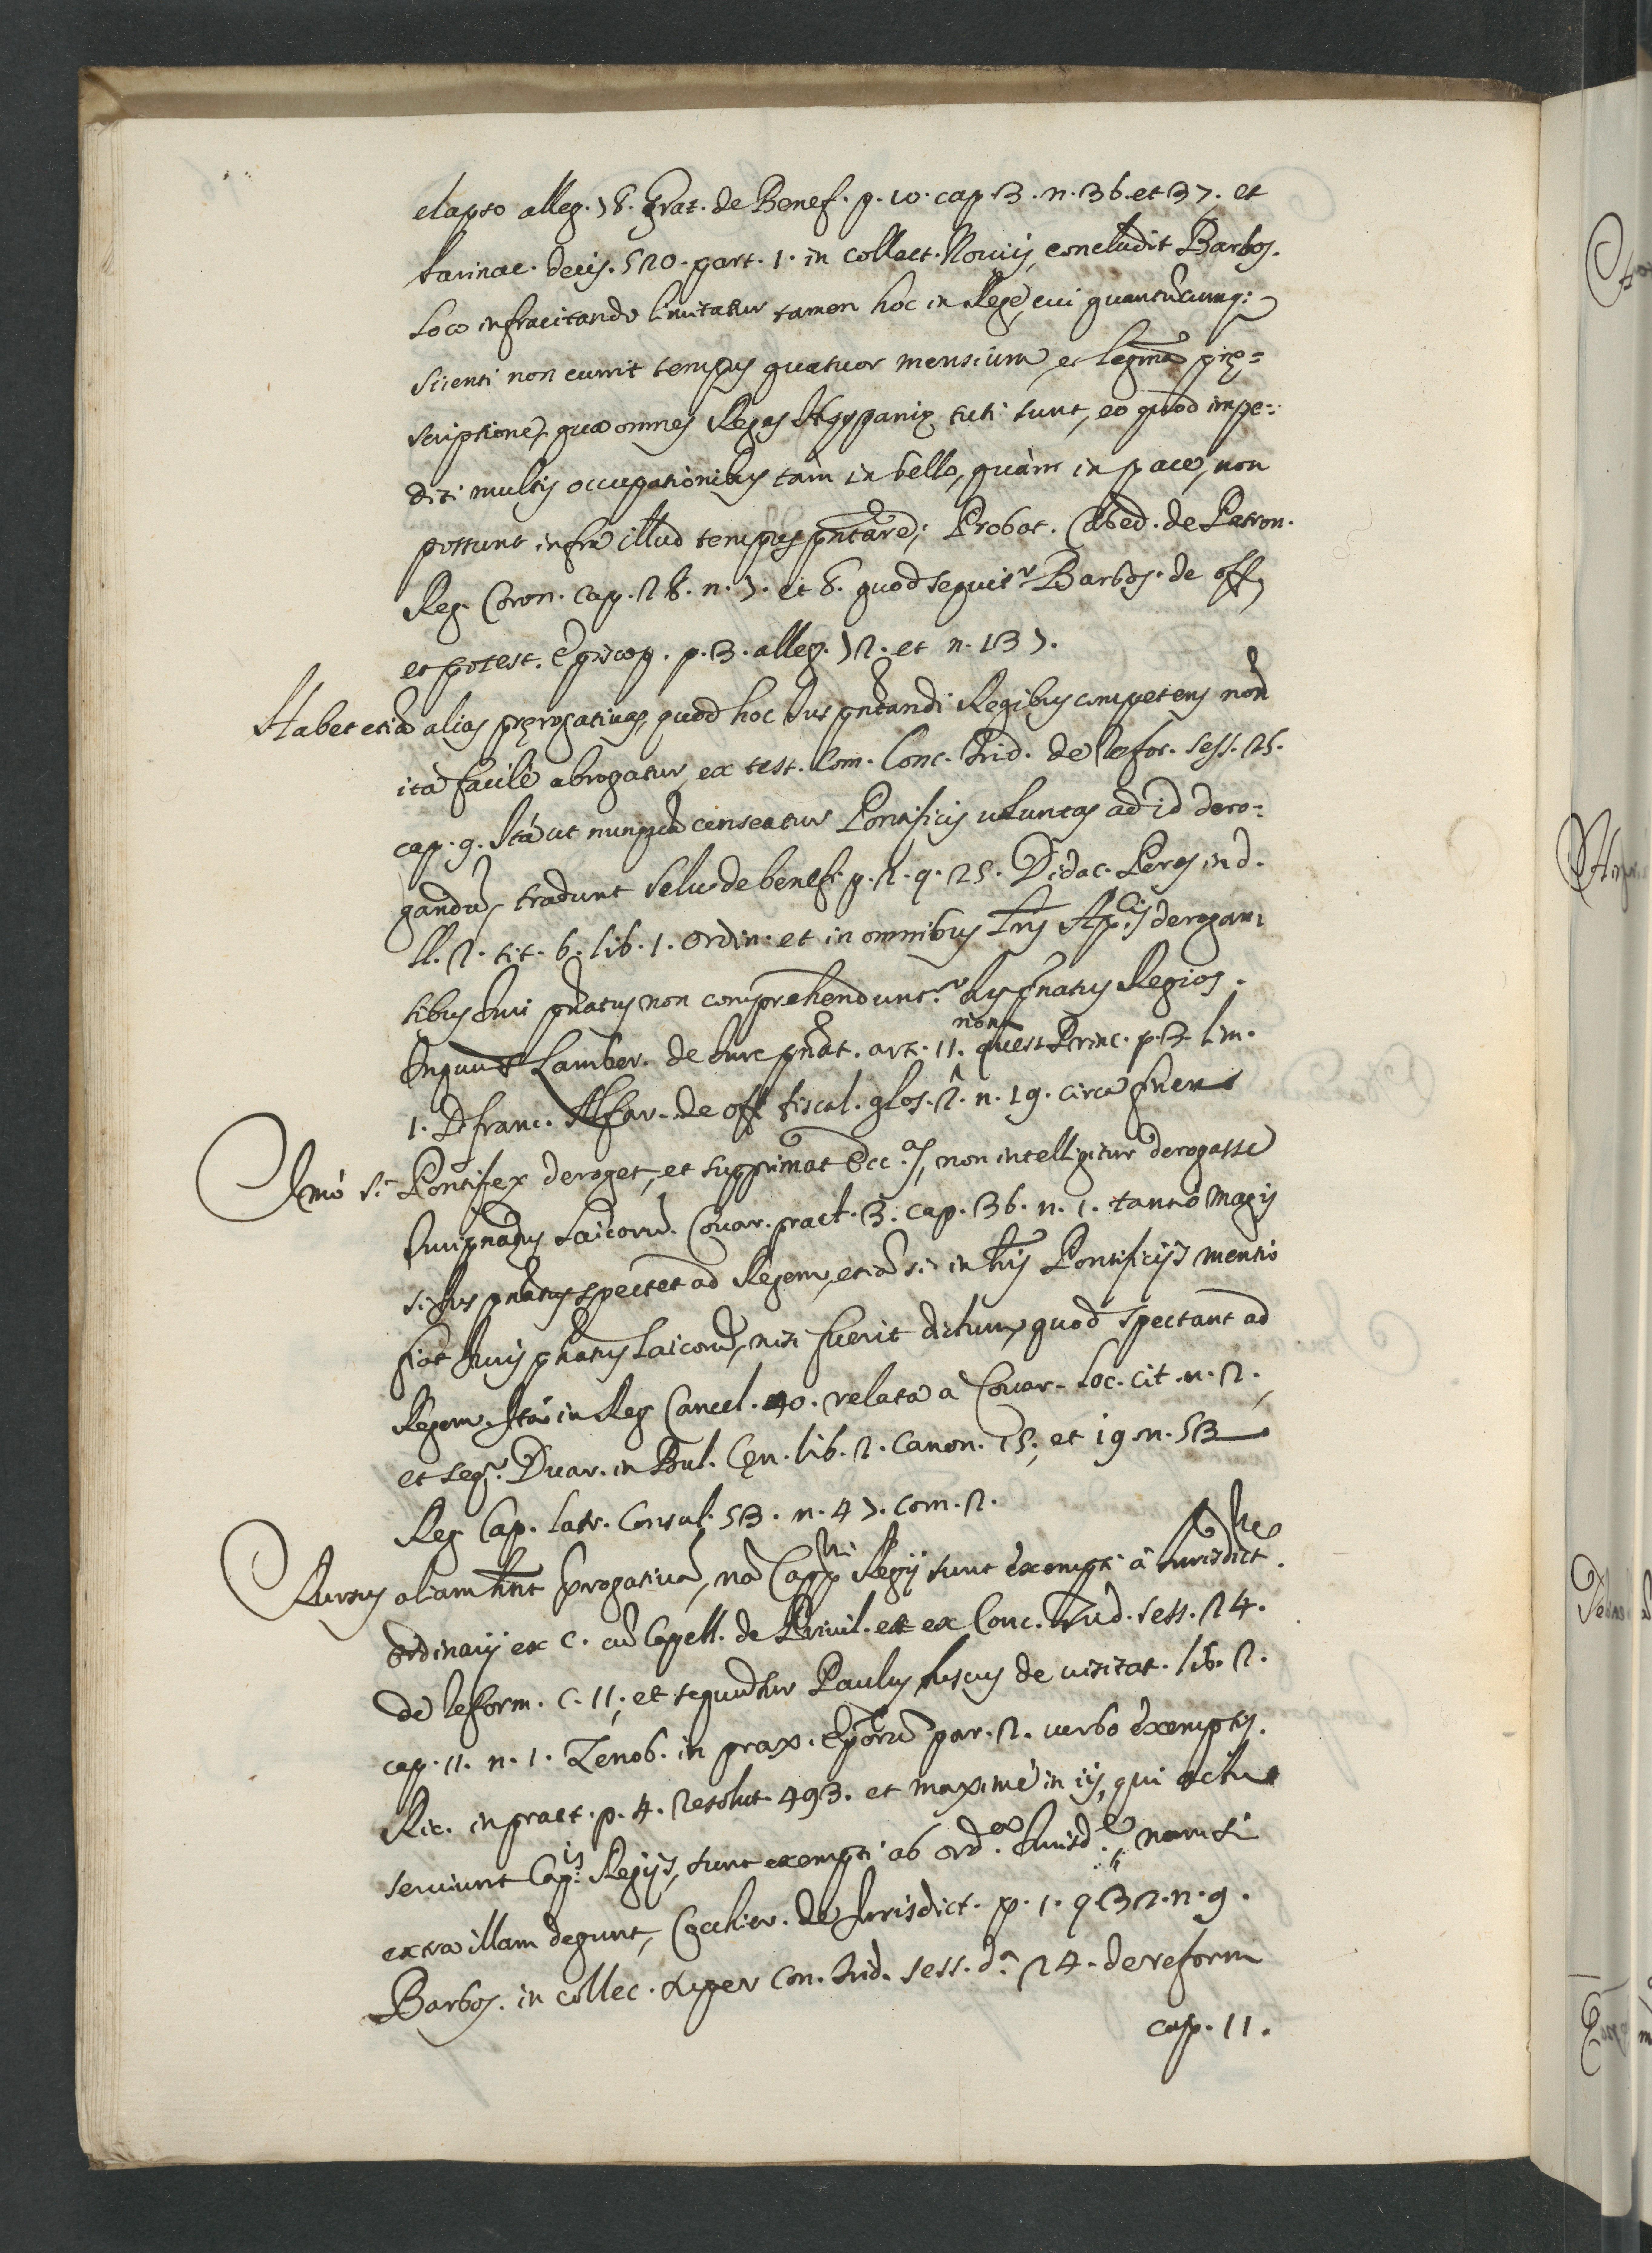 elapso alleg. 78. Grat. de Benef. p. 10. cap. 3. n. 36. et 37. et
farinac. decis. 520. part. 1. in collect. Novis, concludit Barbos.
loco infracitando limitatur tamen hoc in Rege, cui quantũcumq;
scienti non currit tempus quatuor mensium, et legma prę=
scriptione, qua omnes Reges Hyspanię tuti sunt, eo quod impe=
diti multis occupationibus tàm in bello, quàm in pace, non
possunt infra illud tempus pñtare; Probat. Cabed. de Patron.
Reg. Coron. cap. 28. n. 7. et 8. quod sequitr Barbos. de off.
et potest. Episcop. p. 3. alleg. 72. et n. 137.
Habet etiã alias pręrogativas, quod hoc Ius pñtandi Regibus competens non
ità facilè abrogatur, ex test. Com. Conc. Trid. de refor. sess. 25.
cap. 9. Ità ut nunquã censeatur Pontificis voluntas ad id dero=
gandũ, tradunt Selv. de benef. p. 2. q. 25. Didac. Peres in d.
ll. 2. tit. 6. lib. 1. ordin. et in omnibus lrĩs Ap.cis derogan
tibus Iuri pñatus non comprehenduntr Ius pñatus Regios.
Inquit Lamber. de Iure pñat. art. 11. quest. Princ. p. 3. lim.
1. D. franc. Alfar. de off. fiscal. glos. 2. n. 19. circa finem
Imò si Pontifex deroget, et supprimat Ecc.as, non intelligitur derogasse
Iuripnatus Laicorũ. Covar. pract. 3. cap. 36. n. 1. tantò magis
si Ius pñatus spectet ad Regem, etiã si in lrĩs Pontificijs mentio
fiat Iuris pñatus Laicorũ, nisi fuerit dictum, quod spectant ad
Regem. Ità in Reg. Cancel. 40. relata à Covar. loc. cit. n. 2.
et seqr. Duar. in Bul. Cęn. lib. 2. Canon. 15. et 19. n. 53
Reg. Cap. latr. Consul. 53. n. 47. tom. 2.
Rursus aliam hñt prrogativã, nã Capp.ni Regij sunt exempti à Iurisdict.
ordinarij ex c. cũ Capell. de Privil. et ex Conc. Trid. sess. 24.
de reform. c. 11, et sequuntur Paulus fuscus de visitat. lib. 2.
cap. 11. n. 1. Zenob. in prax. Epõrũ par. 2. verbo exemptis.
Ric. in pract. p. 4. resolut. 493. et maximè in ijs, qui actu
serviunt Cap.is Regijs, sunt exempti ab ord.a Iurisd.e, nam si
extra illam degunt, Cochier. de Iurisdict. p. 1. q. 32. n. 9.
Barbos. in collec. super Con. Trid. sess. d.a 24. de reform
cap. 11.